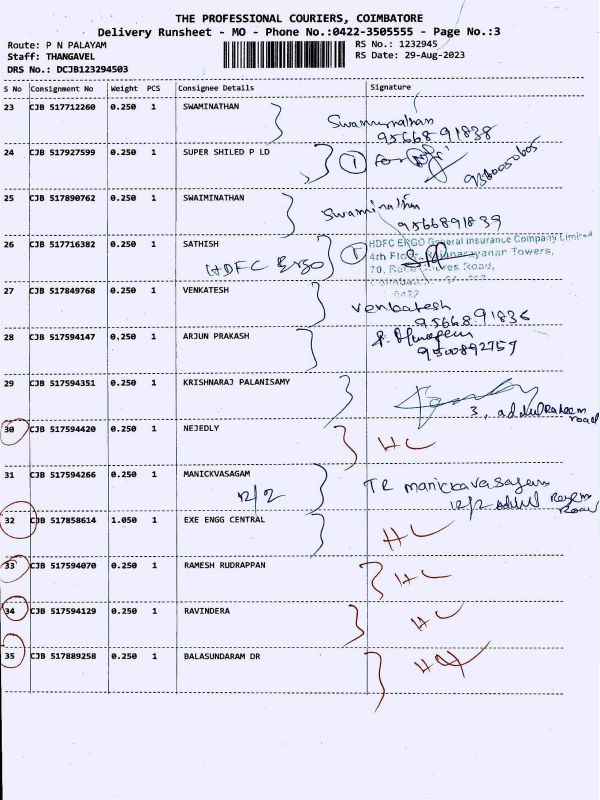 THE PROFESSIONAL COURIERS, COIMBATORE
Delivery Runsheet - MO - Phone No.:0422-3505555 - Page No.:3
Route: P N PALAYAM RS No.: 1232945
Staff: THANGAVEL RS Date: 29-Aug-2023
DRS No.: DCJB123294503
S No Consignment No Weight PCS Consignee Details Signature
23 CJB 517712260 0.250 1 SWAMINATHAN Swaminathan
95668 91838
24 CJB 517927599 0.250 1 SUPER SHILED P LD 1 For
9360050605
25 CJB 517890762 0.250 1 SWAIMINATHAN Swaminathan
9566891839
26 CJB 517716382 0.250 1 SATHISH 1 HDFC ERGO General Insurance Company Limited
HDFC Ergo 4th Floor, Rajanarayanan Towers,
70, Race Course Road,
27 CJB 517849768 0.250 1 VENKATESH Venkatesh
95668 91836
28 CJB 517594147 0.250 1 ARJUN PRAKASH
9500892757
29 CJB 517594351 0.250 1 KRISHNARAJ PALANISAMY
3, abdulRaheem
road
30 CJB 517594420 0.250 1 NEJEDLY HC
31 CJB 517594266 0.250 1 MANICKVASAGAM TR manickavasagam
12/2 12/2 abdul
Road
32 CJB 517858614 1.050 1 EXE ENGG CENTRAL HC
33 CJB 517594070 0.250 1 RAMESH RUDRAPPAN HC
34 CJB 517594129 0.250 1 RAVINDERA HC
35 CJB 517889258 0.250 1 BALASUNDARAM DR